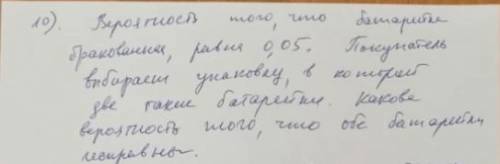 10). Вероятность того, что батарейка
бракованная, равна 0,05. Покупатель
выбирает упаковку, в которой
две такие батарейки. Какова
вероятность того, что обе батарейки
исправны.